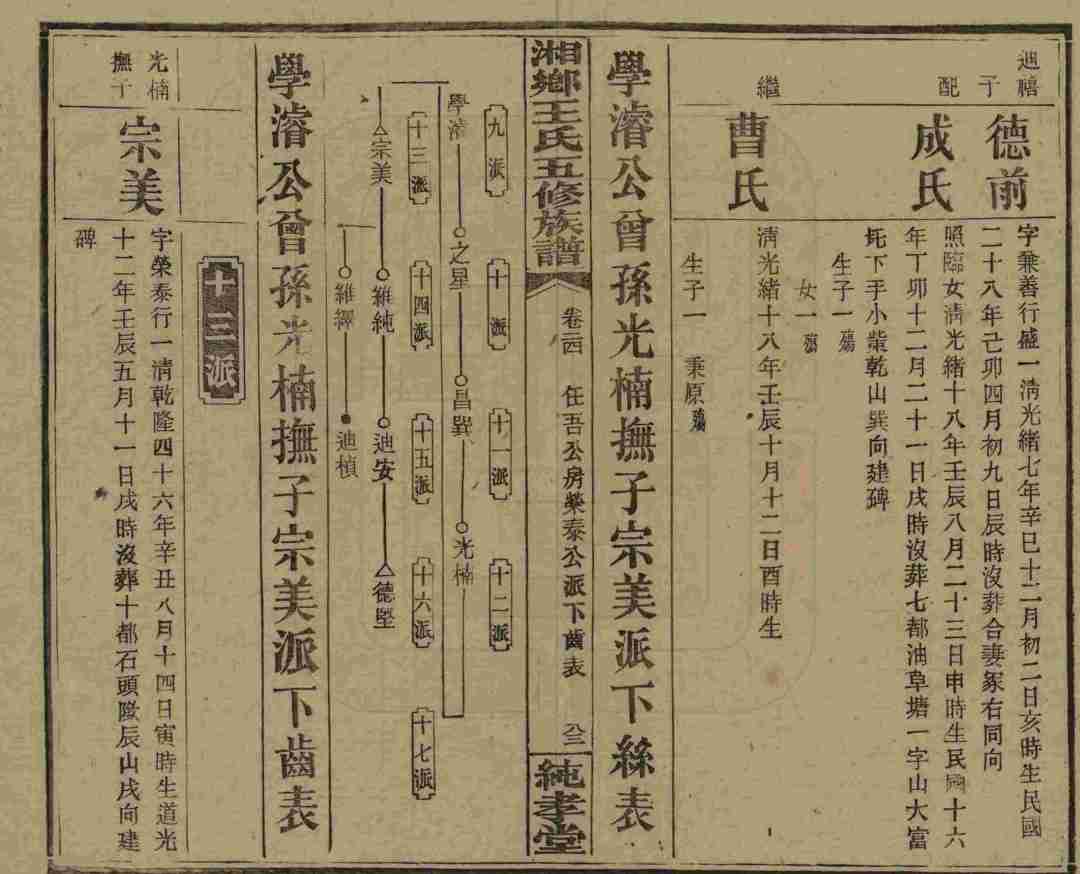 迥禧子
德前
字秉善行盛一清光緒七年辛巳十二月初二日亥時生民國
二十八年己卯四月初九日辰時沒葬合妻冢右同向
配
成氏
照臨女清光緒十八年壬辰八月二十三日申時生民國十六
年丁卯十二月二十一日戌時沒葬七都油草塘一字山大富
坵下手小柴乾山巽向建碑
生子一殤
女一殤
繼
曹氏
清光緒十八年壬辰十月十二日酉時生
生子一 秉原殤
學濬公曾孫光楠撫子宗美派下絲表
湘鄉王氏五修族譜
卷二四 任吾公房榮泰公派下齒表
純孝堂
九派 十派 十一派 十二派
學濬 之星 昌巽 光楠
十三派 十四派 十五派 十六派 十七派
宗美 維純 迪安 德堅
維繹 迪楨
學濬公曾孫光楠撫子宗美派下齒表
十三派
光楠撫子
宗美
字榮泰行一清乾隆四十六年辛丑八月十四日寅時生道光
十二年壬辰五月十一日戌時沒葬十都石頭隆辰山戌向建
碑